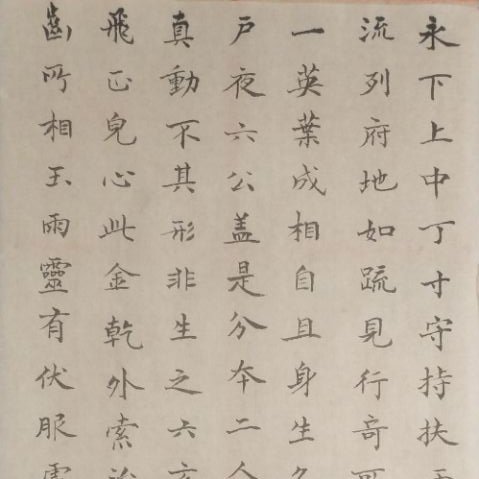 永下上中丁寸守持扶
流列府地如疏見行奇
一英葉成相自且身生
戶夜六公盖是分本二
真動不其形非生之六
飛正皃心此金乾外索
齒所相玉雨靈有伏服